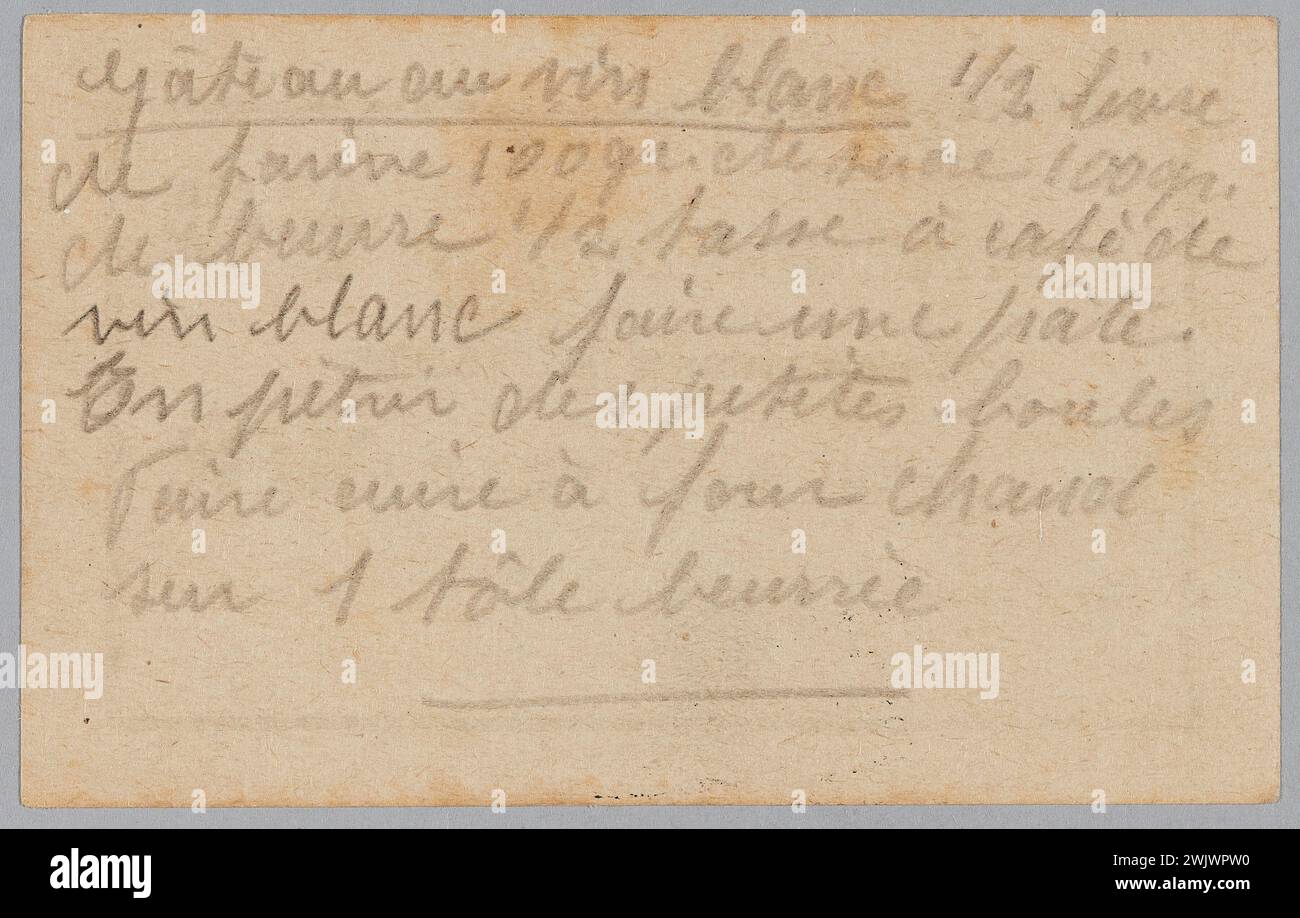 Gâteau au vin blanc 1/2 livre
de farine 100gr. de sucre 100gr.
de beurre 1/2 tasse à café de
vin blanc faire une pâte.
En pétrir des petites boules
Faire cuire à four chaud
sur 1 tôle beurrée
alamy
alamy
alamy
alamy
alamy
alamy
Image ID: 2WJWPW0
www.alamy.com